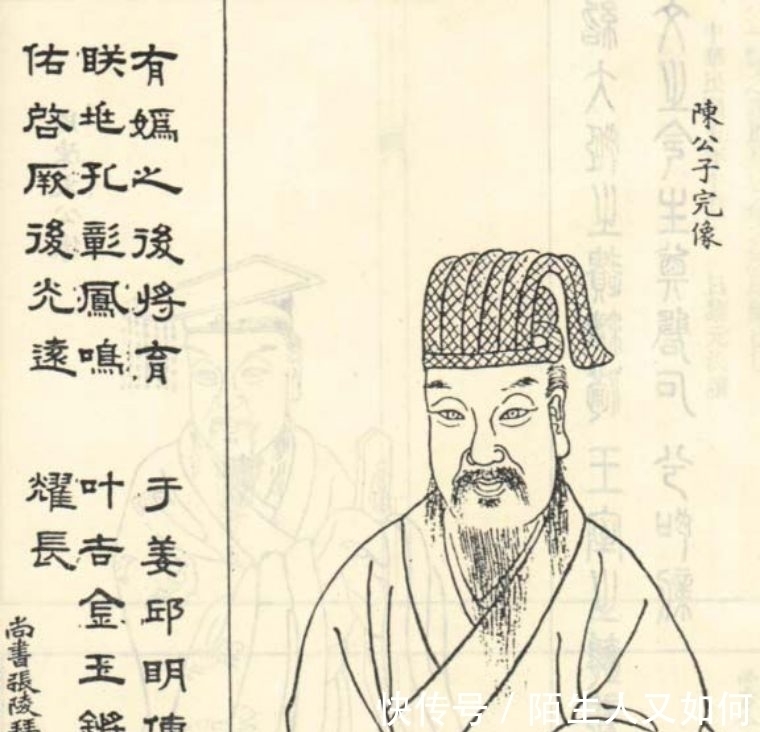 陳公子完像
有媯之後將育于姜邱明傳
眹垗孔彰鳳鳴叶吉金玉鏘
佑啓厥後光遠耀長
尚書張陵拜
快传号 / 陌生人又如何